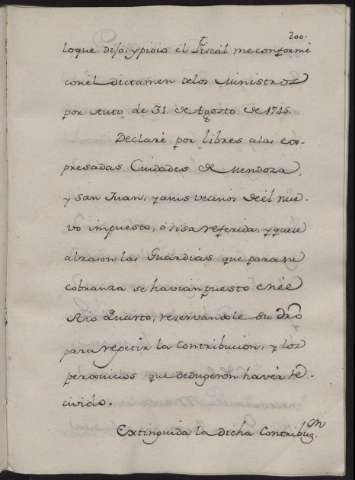 200.
loque dijo, y pidio el Fiscal me conformè
con èl dictamen delos Ministros
por Auto de 31 de Agosto de 1715.
Declarè por libres alas ex-
presadas Ciudades de Mendoza,
y San Juan, y asus vecinos de èl nue-
vo impuesto, ò sisa referida, y que se
alzasen las Guardias que para su
cobranza se havian puesto en èl
Rio Quarto, reservandole su dro
para repetir la contribucion, y los
perjuicios que dedugeron haver re-
civido.
Extinguida la dicha Contribuz.on